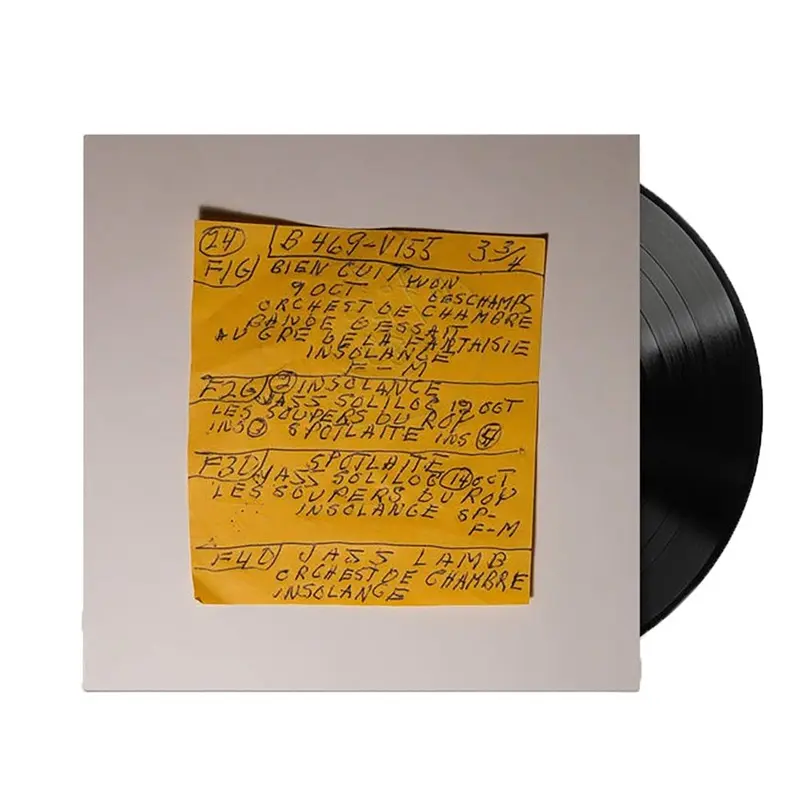 24 B 469-V155 3 3/4
F1G BIEN CUIT YVON
9 OCT DESCHAMPS
ORCHEST DE CHAMBRE
BANDE DESSAIT
AU GRE DE LA FANTAISIE
INSOLANGE
F-M
F2G 2 INSOLANGE
JASS SOLILOQ 19 OCT
LES SOUPERS DU ROY
INS SPOTLAITE INS
F3D SPOTLAITE
JASS SOLILOQ 14 OCT
LES SOUPERS DU ROY
INSOLANGE SP-
F-M
F4D JASS LAMB
ORCHEST DE CHAMBRE
INSOLANGE